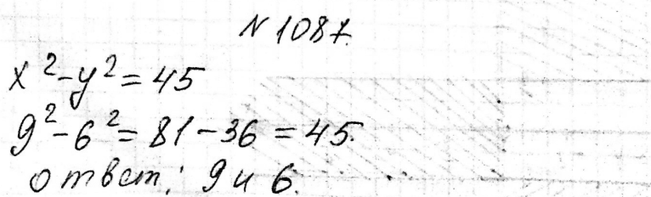 № 1087.
x² - y² = 45
9² - 6² = 81 - 36 = 45.
ответ: 9 и 6.